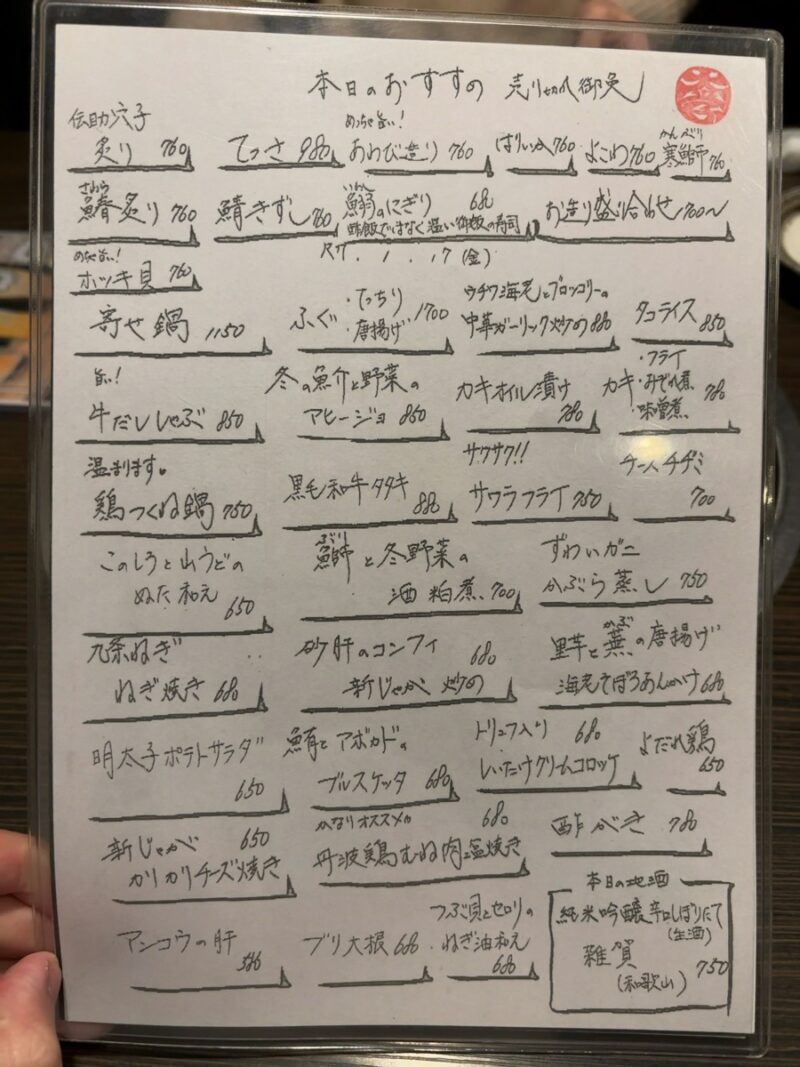 本日のおすすめ 売り切れ御免
伝助穴子 めっちゃ旨い! かんべり
炙り 760 てっさ 980 あわび造り 760 はりいか 760 よこわ 760 寒鰤 760
さわら いわし
鰆炙り 760 鯖きずし 760 鰯のにぎり 680 お造り盛り合わせ 700〜
酢飯ではなく温い御飯の寿司
めっちゃ旨い! R7.1.17(金)
ホッキ貝 760
寄せ鍋 1150 ふぐ・てっちり・唐揚げ 1700 ウチワ海老とブロッコリーの中華ガーリック炒め 880 タコライス 850
旨い!
牛だししゃぶ 850 冬の魚介と野菜のアヒージョ 850 カキオイル漬け 780 カキ・フライ・みぞれ煮・味噌煮 780
温まります。 サクサク!!
鶏つくね鍋 750 黒毛和牛タタキ 880 サワラフライ 750 チーズチヂミ 700
このしろと山うどの ぶり ずわいガニ
ぬた和え 650 鰤と冬野菜の酒粕煮 700 かぶら蒸し 750
九条ねぎ 砂肝のコンフィ 680 里芋と蕪の唐揚げ
かぶ
ねぎ焼き 680 新じゃが炒め 海老そぼろあんかけ 680
明太子ポテトサラダ 650 鮪とアボカドのブルスケッタ 680 トリュフ入り 680 しいたけクリームコロッケ よだれ鶏 650
かなりオススメ
新じゃが 650 カリカリチーズ焼き 丹波鶏むね肉塩焼き 680 酢がき 780
アンコウの肝 ブリ大根 680 つぶ貝とセロリのねぎ油和え 680
本日の地酒
純米吟醸辛口しぼりたて
(生酒)
雑賀 750
(和歌山)